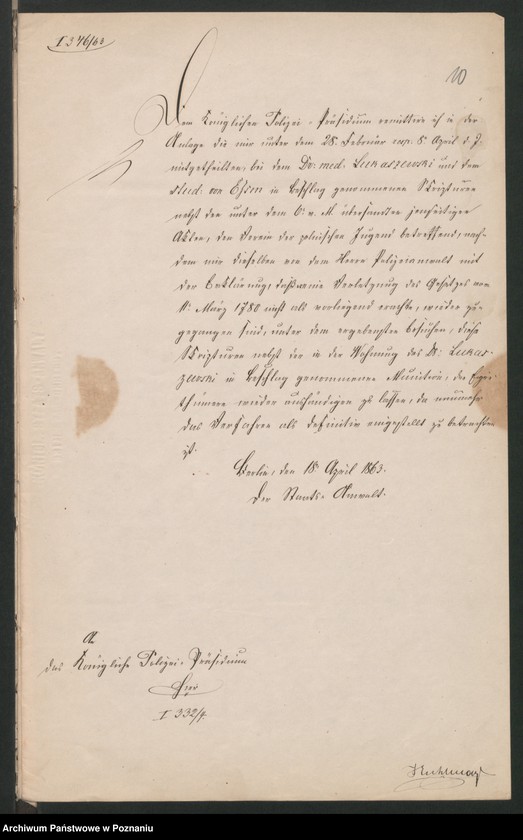 I 346/63
10
Dem Königlichen Polizei-Präsidium remittire ich in der
Anlage die mir unter dem 28. Februar resp. 8. April d. J.
mitgetheilten, bei dem Dr. med. Lukaszewski und dem
stud. von in Beschlag genommenen Skripturen
nebst den unter dem 6. v. M. übersandten jenseitigen
Akten, den Verein der polnischen Jugend betreffend, nach-
dem mir dieselben von dem Herrn Polizeianwalt mit
der Erklärung, daß eine Verletzung des Gesetzes vom
11. März nicht als vorliegend erachte, wieder zu-
gegangen sind, unter dem ergebensten Ersuchen, diese
Skripturen nebst der in der Wohnung des Dr. Lukas-
zewski in Beschlag genommenen Munition, den Eigen-
thümern wieder aushändigen zu lassen, da nunmehr
das Verfahren als definitiv eingestellt zu betrachten
ist.
Berlin, den 18. April 1863.
Der Staats-Anwalt.
An
das Königliche Polizei-Präsidium
Hier
I 332/4.
Archiwum Państwowe w Poznaniu